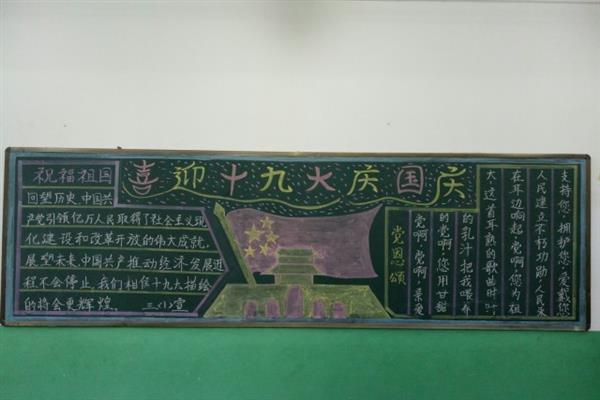 喜迎十九大庆国庆
祝福祖国
回望历史,中国共
产党引领亿万人民取得了社会主义现
化建设和改革开放的伟大成就,
展望未来,中国共产推动经济发展进
程不会停止,我们相信十九大描绘
的将会更辉煌。
党恩颂
党啊,党啊,亲爱
的党啊,您用甘甜
的乳汁把我喂养
大这首耳熟的歌曲时时
在耳边响起党啊,您为祖
人民建立不朽功勋,人民永
支持您,拥护您,爱戴您